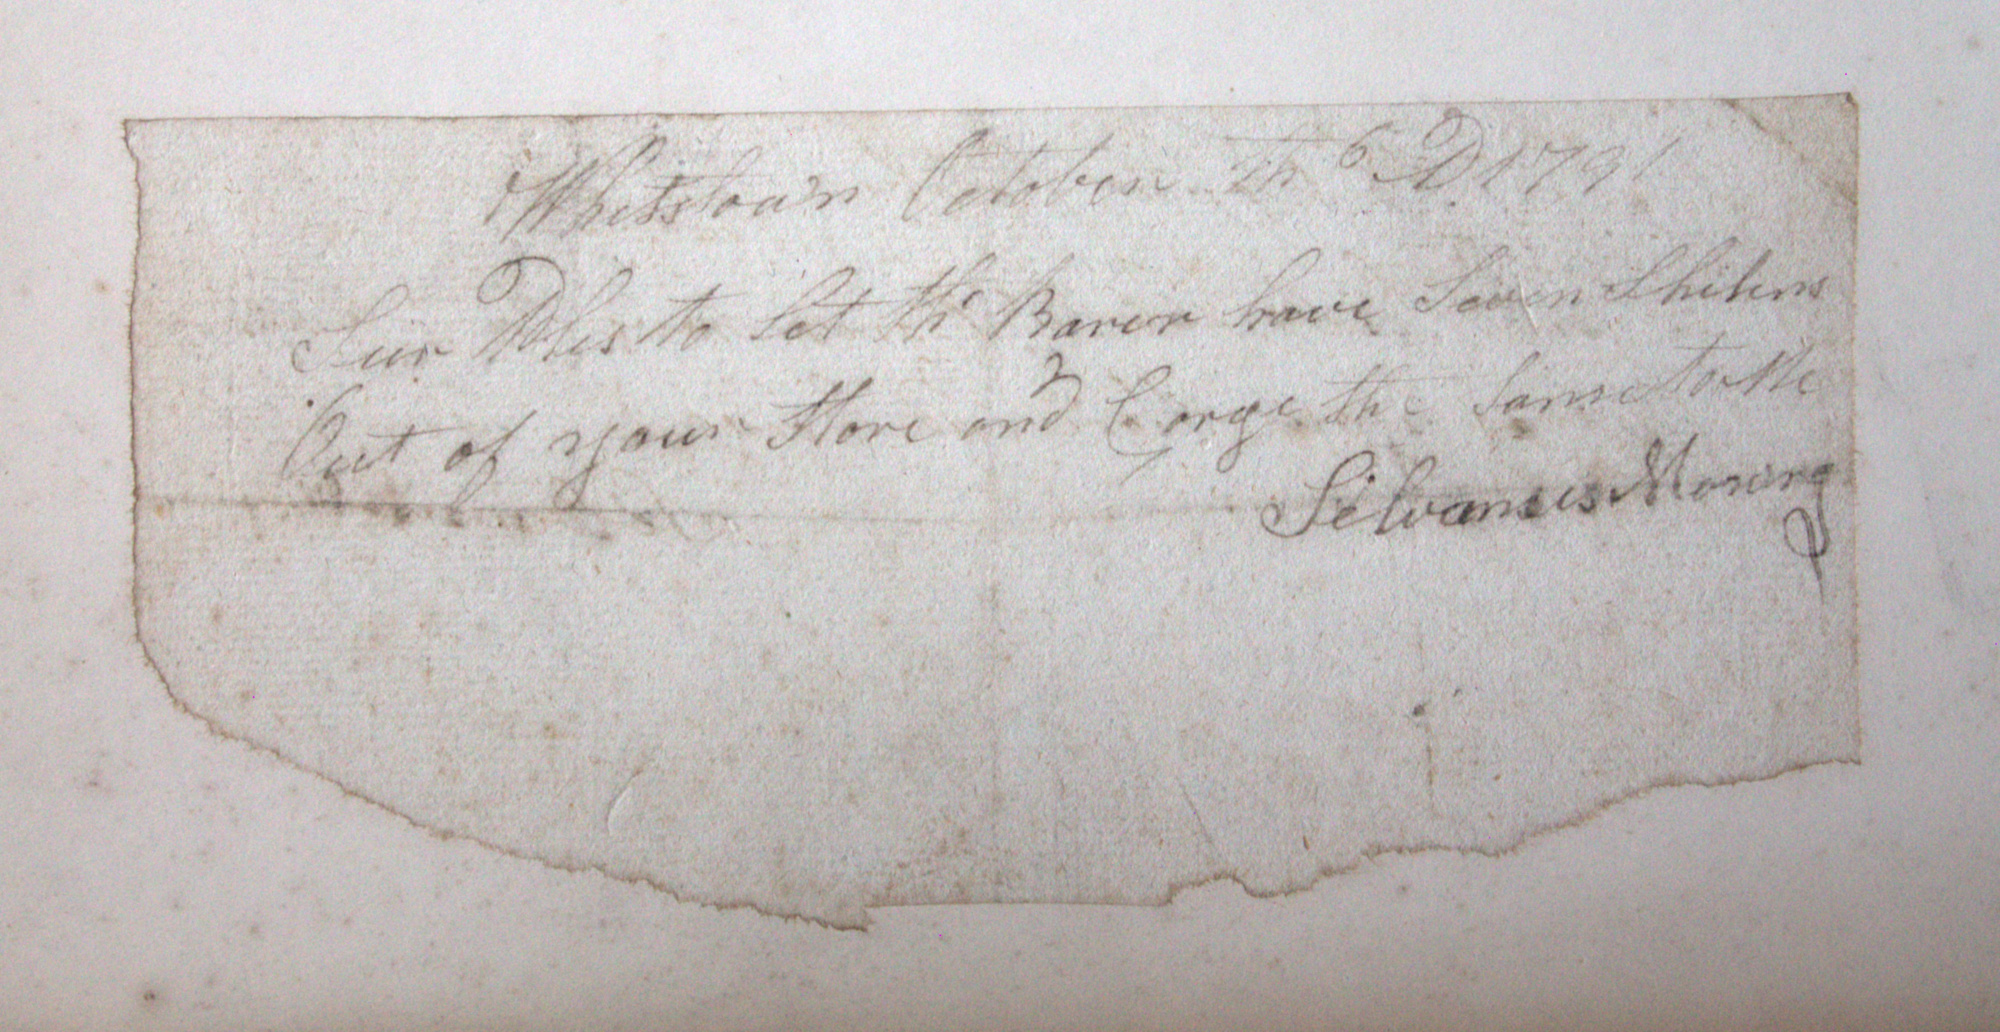 Whitstown October th 6 D 1791
Sur Ples to Let the Barer have Seven Shilens
Out of your Store and Carge the Same to Me
Silvanus Mowry